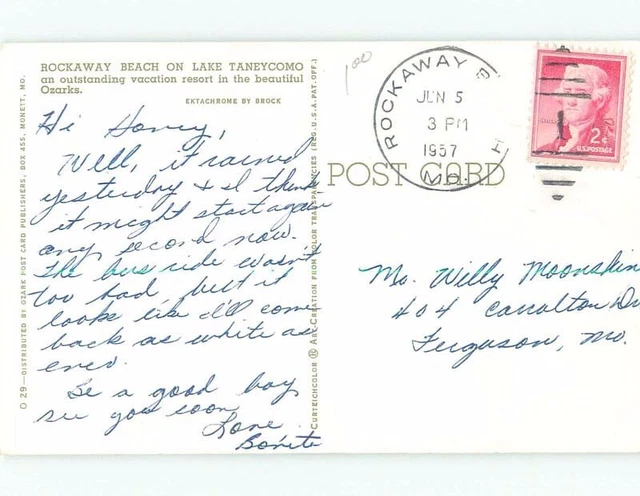 ROCKAWAY BEACH ON LAKE TANEYCOMO
an outstanding vacation resort in the beautiful
Ozarks.
EKTACHROME BY BROCK
Hi Honey,
Well, it rained
yesterday & I think
it might start again
any second now.
The bus ride wasn't
too bad, but it
looks like I'll come
back as white as
ever.
Be a good boy
see you soon
Love
Bonita
O 29—DISTRIBUTED BY OZARK POST CARD PUBLISHERS, BOX 455, MONETT, MO.
CURTEICHCOLOR ® ART-CREATION FROM COLOR TRANSPARENCIES (REG. U.S.A. PAT. OFF.)
1.00
ROCKAWAY B
JUN 5
3 PM
1957
MO.
2¢
U.S. POSTAGE
POST CARD
Mo. Willy Moonshin
404 Carrolton Dr
Ferguson, Mo.